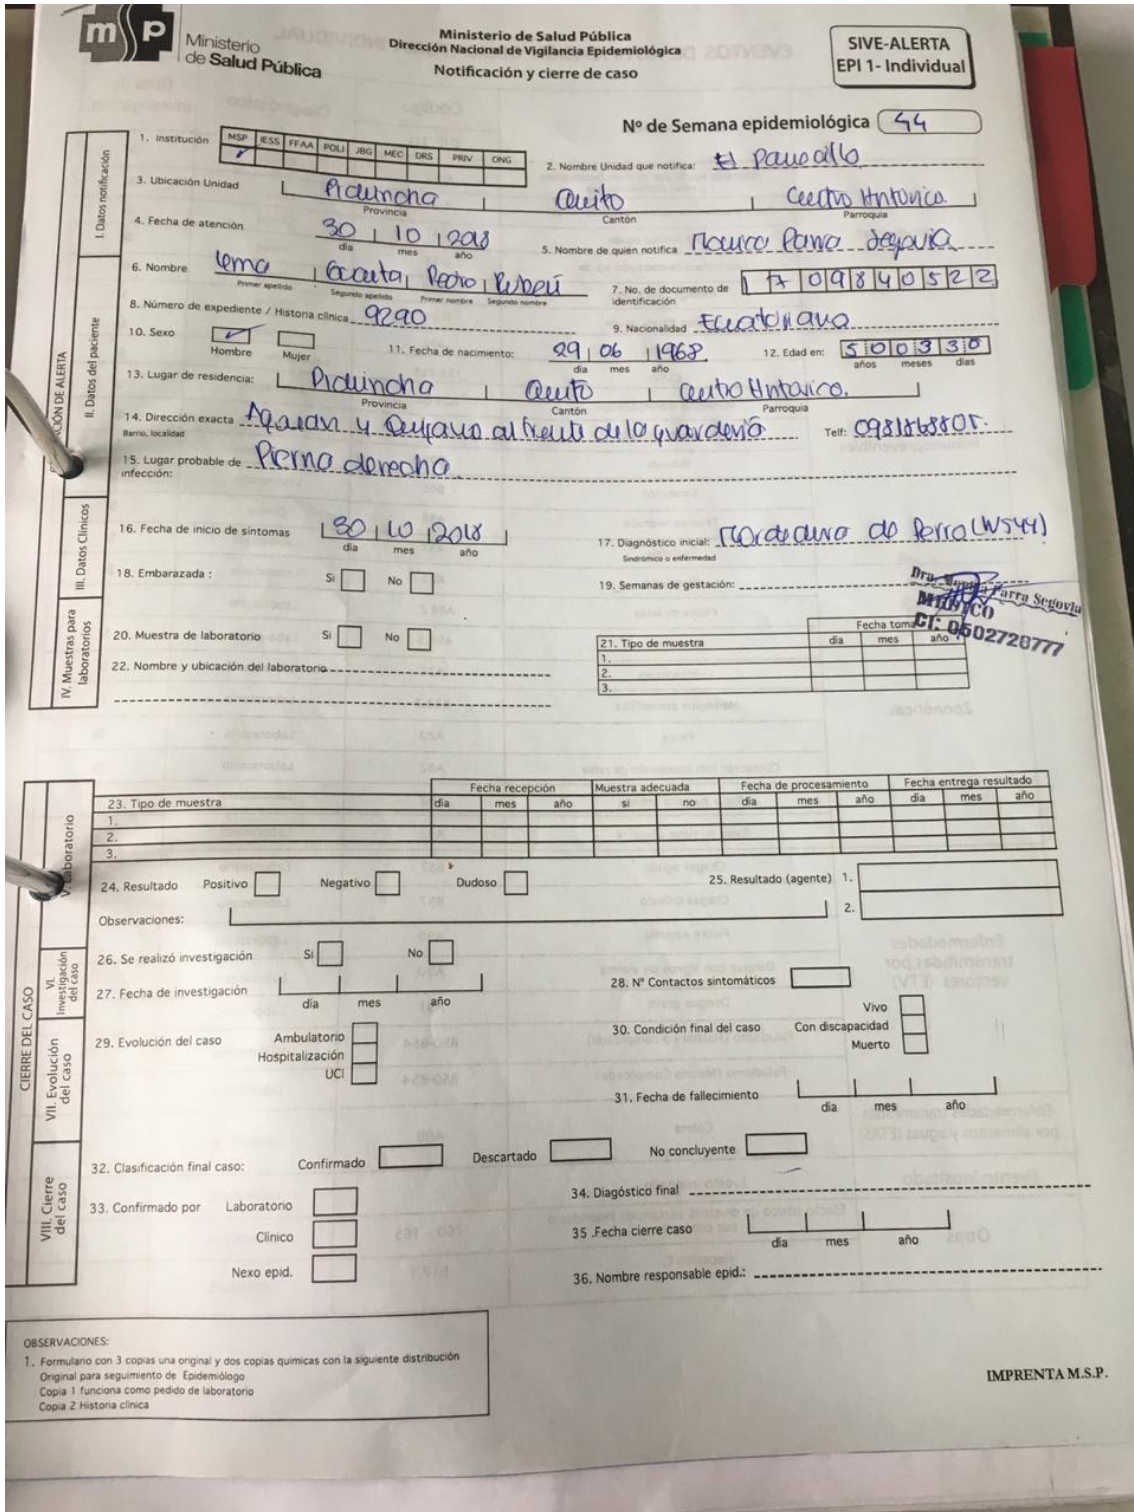 msp
Ministerio
de Salud Pública
Ministerio de Salud Pública
Dirección Nacional de Vigilancia Epidemiológica
Notificación y cierre de caso
SIVE-ALERTA
EPI 1- Individual
Nº de Semana epidemiológica 44
I. Datos notificación
1. Institución MSP IESS FFAA POLI JBG MEC DRS PRIV ONG
2. Nombre Unidad que notifica: El
3. Ubicación Unidad Pichincha Quito Centro
Provincia Cantón Parroquia
4. Fecha de atención 30 10 2018
día mes año
5. Nombre de quien notifica Parra Segovia
II. Datos del paciente
6. Nombre Lema Pedro
Primer apellido Segundo apellido Primer nombre Segundo nombre
7. No. de documento de identificación 1 7 0 9 8 4 0 5 2 2
8. Número de expediente / Historia clínica 9290
9. Nacionalidad Ecuatoriana
10. Sexo Hombre Mujer
11. Fecha de nacimiento: 29 06 1968
día mes año
12. Edad en: 5 0 0 3 3 0
años meses días
13. Lugar de residencia: Pichincha Quito Centro
Provincia Cantón Parroquia
14. Dirección exacta y al frente de la guardería
Barrio, localidad
Telf:
15. Lugar probable de infección: Pierna derecha
III. Datos Clínicos
16. Fecha de inicio de síntomas 30 10 2018
día mes año
17. Diagnóstico inicial: de Perro (W544)
Sindrómico o enfermedad
18. Embarazada : Si No
19. Semanas de gestación:
Dra. Parra Segovia
MEDICO
CI: 0502728777
IV. Muestras para laboratorios
20. Muestra de laboratorio Si No
21. Tipo de muestra Fecha toma
día mes año
1.
2.
3.
22. Nombre y ubicación del laboratorio
CIERRE DEL CASO
V. Laboratorio
23. Tipo de muestra Fecha recepción Muestra adecuada Fecha de procesamiento Fecha entrega resultado
día mes año si no día mes año día mes año
1.
2.
3.
24. Resultado Positivo Negativo Dudoso
25. Resultado (agente) 1.
2.
Observaciones:
VI. Investigación del caso
26. Se realizó investigación Si No
27. Fecha de investigación
día mes año
28. Nº Contactos sintomáticos
VII. Evolución del caso
29. Evolución del caso Ambulatorio
Hospitalización
UCI
30. Condición final del caso Vivo
Con discapacidad
Muerto
31. Fecha de fallecimiento
día mes año
VIII. Cierre del caso
32. Clasificación final caso: Confirmado Descartado No concluyente
33. Confirmado por Laboratorio
Clínico
Nexo epid.
34. Diagóstico final
35 .Fecha cierre caso
día mes año
36. Nombre responsable epid.:
OBSERVACIONES:
1. Formulario con 3 copias una original y dos copias quimicas con la siguiente distribución
Original para seguimiento de Epidemiólogo
Copia 1 funciona como pedido de laboratorio
Copia 2 Historia clínica
IMPRENTA M.S.P.